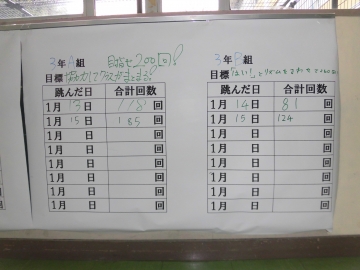 3年A組 目指せ200回!
目標 協力してクラスがまとまる!
跳んだ日 合計回数
1月13日 118回
1月15日 185回
1月 日 回
1月 日 回
1月 日 回
1月 日 回
1月 日 回
1月 日 回
3年B組
目標「はい!」とリズムをあわせて
跳んだ日 合計回数
1月14日 81回
1月15日 124回
1月 日 回
1月 日 回
1月 日 回
1月 日 回
1月 日 回
1月 日 回